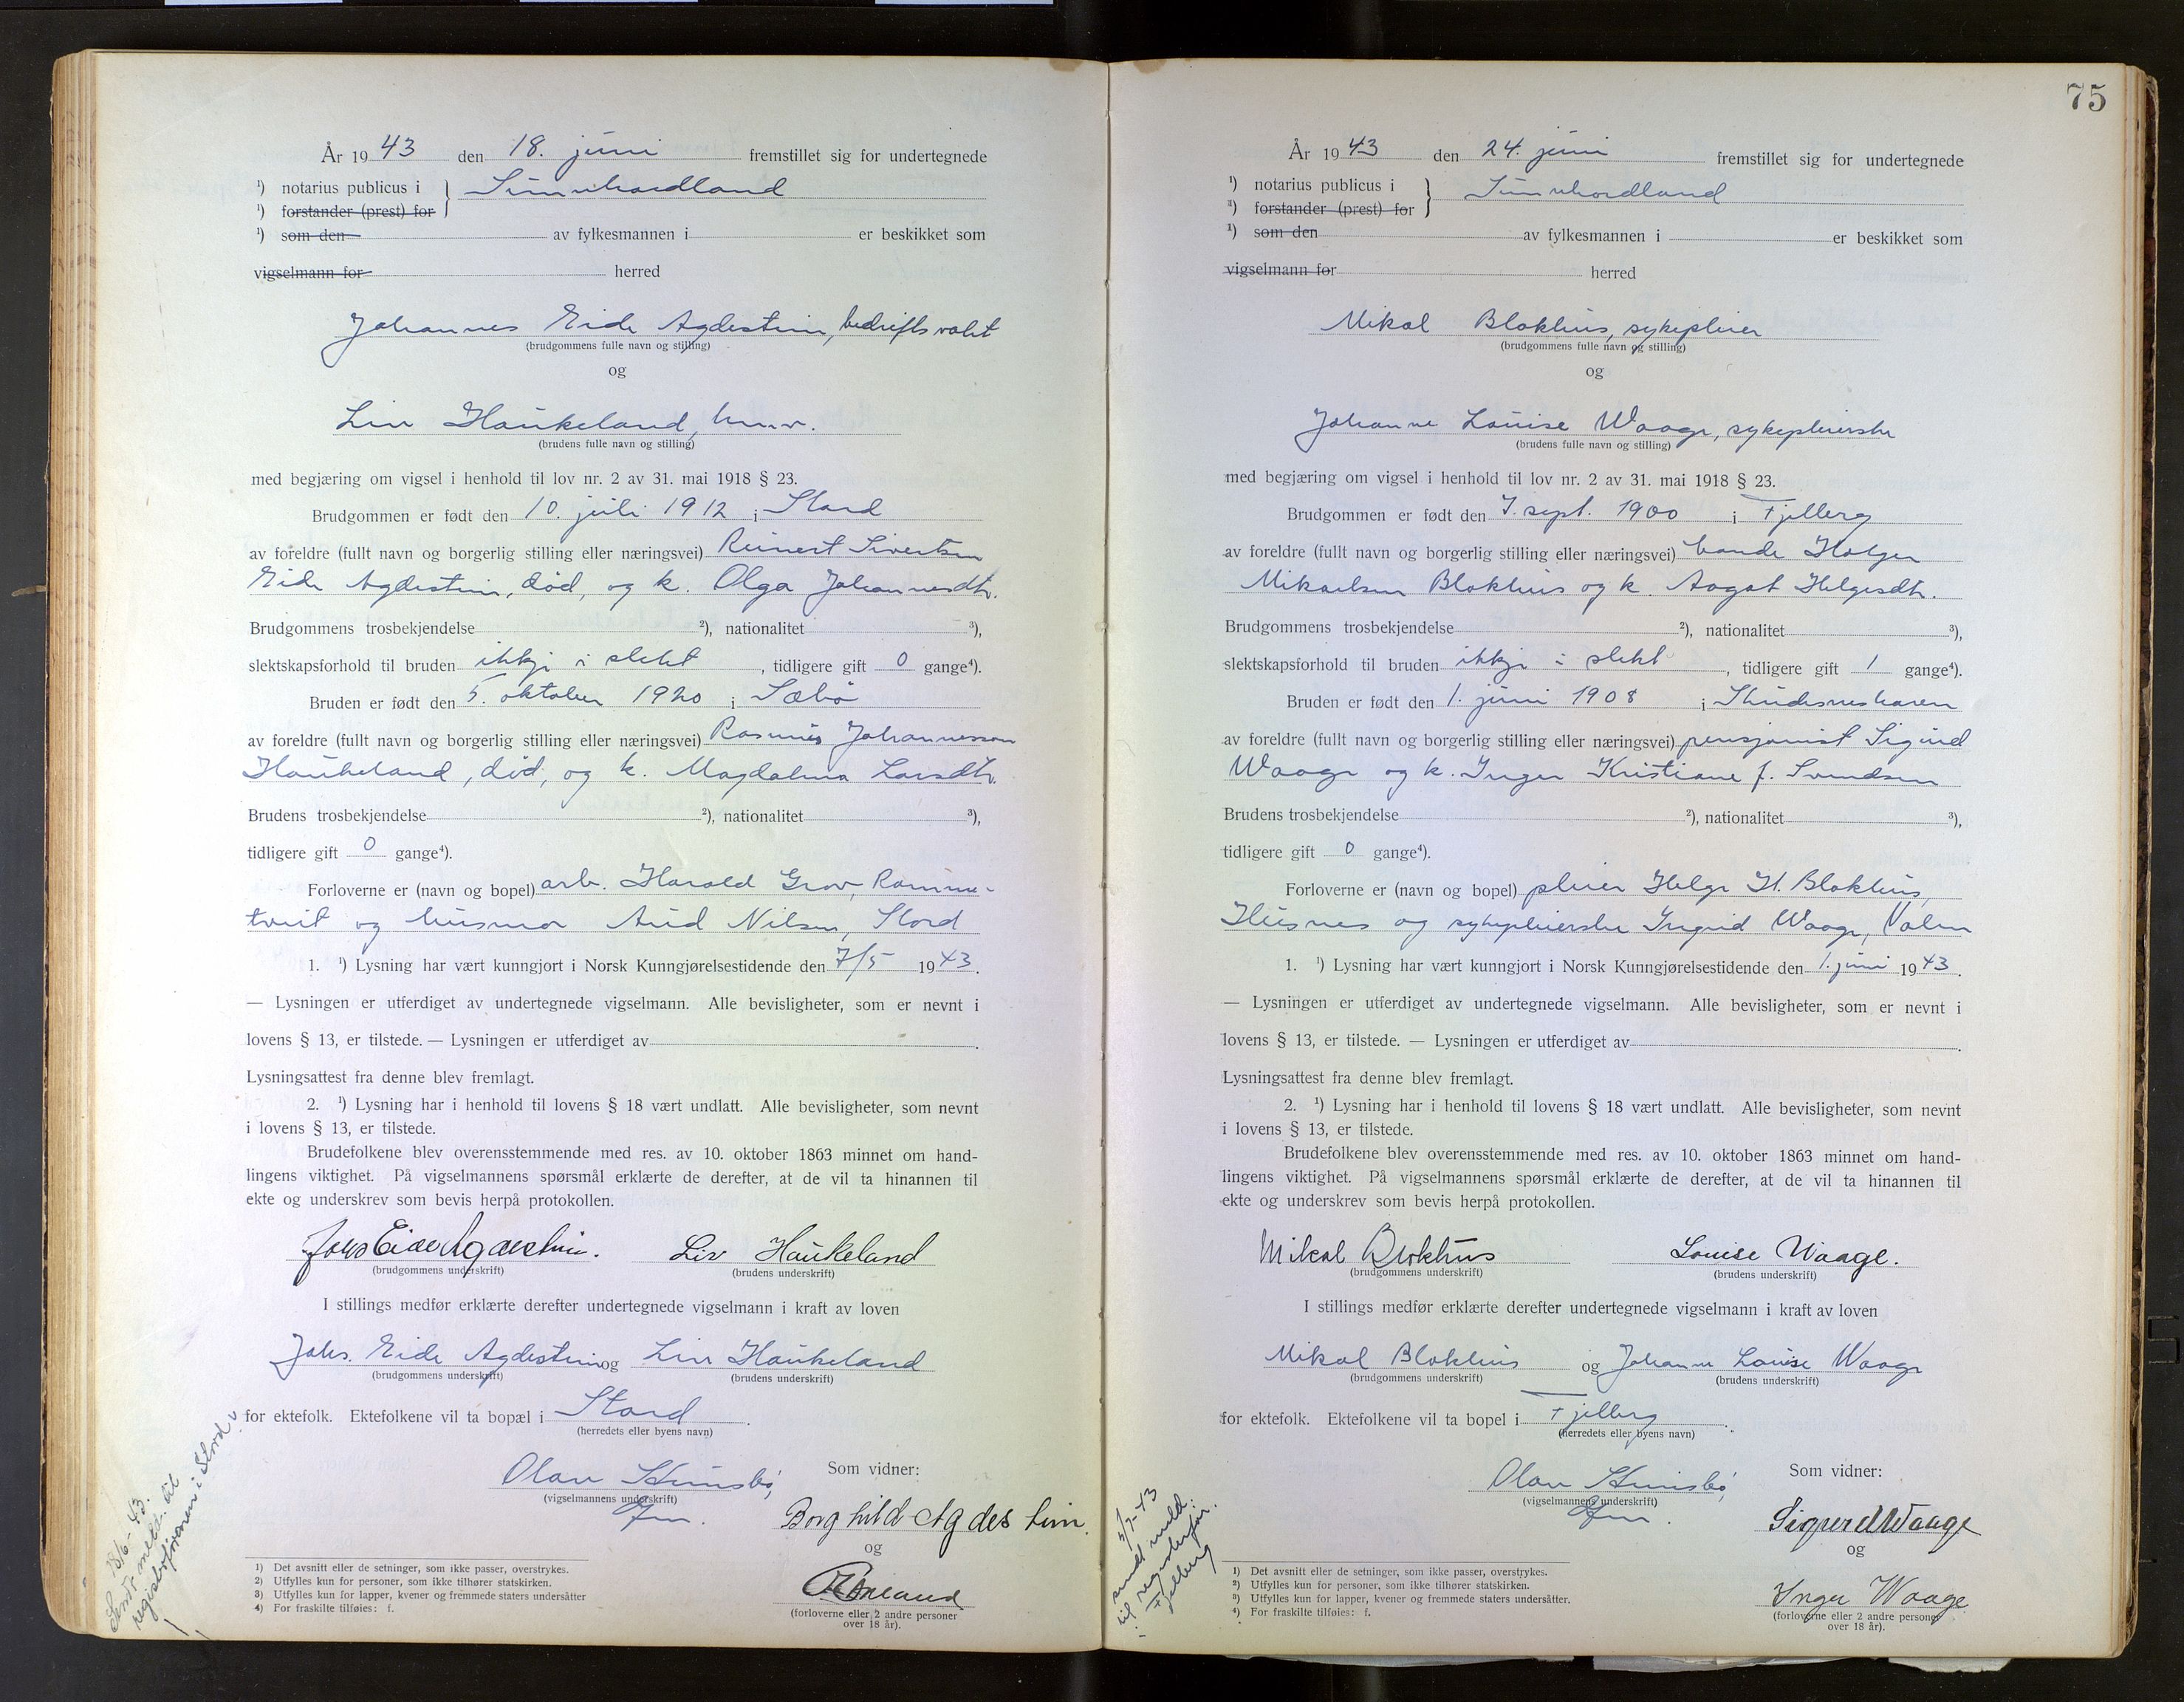 År 1943 den 18. juni fremstillet sig for undertegnede
¹) notarius publicus i } Sunnhordland
¹) forstander (prest) for
¹) som den av fylkesmannen i er beskikket som
vigselmann for herred
Johannes Eide Agdestein, bedriftsvakt
(brudgommens fulle navn og stilling)
og
Liv Haukeland, husv.
(brudens fulle navn og stilling)
med begjæring om vigsel i henhold til lov nr. 2 av 31. mai 1918 § 23.
Brudgommen er født den 10. juli 1912 i Stord
av foreldre (fullt navn og borgerlig stilling eller næringsvei) Reinert Sivertsen
Eide Agdestein, død, og k. Olga Johannesdtr.
Brudgommens trosbekjendelse ²), nationalitet ³),
slektskapsforhold til bruden ikkje i slekt, tidligere gift 0 gange⁴).
Bruden er født den 5. oktober 1920 i Sæbø
av foreldre (fullt navn og borgerlig stilling eller næringsvei) Rasmus Johannesson
Haukeland, død, og k. Magdalena Larsdtr.
Brudens trosbekjendelse ²), nationalitet ³),
tidligere gift 0 gange⁴).
Forloverne er (navn og bopel) arb. Harald Grov, Romme-
tveit og husmor Aud Nilsen, Stord
1. ¹) Lysning har vært kunngjort i Norsk Kunngjørelsestidende den 7/5 1943.
— Lysningen er utferdiget av undertegnede vigselmann. Alle bevisligheter, som er nevnt i
lovens § 13, er tilstede. — Lysningen er utferdiget av .
Lysningsattest fra denne blev fremlagt.
2. ¹) Lysning har i henhold til lovens § 18 vært undlatt. Alle bevisligheter, som nevnt
i lovens § 13, er tilstede.
Brudefolkene blev overensstemmende med res. av 10. oktober 1863 minnet om hand-
lingens viktighet. På vigselmannens spørsmål erklærte de derefter, at de vil ta hinannen til
ekte og underskrev som bevis herpå protokollen.
Johs Eide Agdestein. Liv Haukeland
(brudgommens underskrift) (brudens underskrift)
I stillings medfør erklærte derefter undertegnede vigselmann i kraft av loven
Johs. Eide Agdestein og Liv Haukeland
(brudgommens underskrift) (brudens underskrift)
for ektefolk. Ektefolkene vil ta bopæl i Stord.
(herredets eller byens navn)
Olav Steinsbø,
(vigselmannens underskrift)
Som vidner:
Borghild Agdestein.
og
(forloverne eller 2 andre personer
over 18 år).
18/6-43.
Sendt meld. til
registerføraren i Stord
1) Det avsnitt eller de setninger, som ikke passer, overstrykes.
2) Utfylles kun for personer, som ikke tilhører statskirken.
3) Utfylles kun for lapper, kvener og fremmede staters undersåtter
4) For fraskilte tilføies: f.
75
År 1943 den 24. juni fremstillet sig for undertegnede
¹) notarius publicus i } Sunnhordland
¹) forstander (prest) for
¹) som den av fylkesmannen i er beskikket som
vigselmann for herred
Mikal Blokhus, sykepleier
(brudgommens fulle navn og stilling)
og
Johanne Louise Waage, sykepleierske
(brudens fulle navn og stilling)
med begjæring om vigsel i henhold til lov nr. 2 av 31. mai 1918 § 23.
Brudgommen er født den 7. sept. 1900 i Fjelberg
av foreldre (fullt navn og borgerlig stilling eller næringsvei) bonde Holger
Mikaelsen Blokhus og k. Aagot Helgesdtr.
Brudgommens trosbekjendelse ²), nationalitet ³),
slektskapsforhold til bruden ikkje i slekt, tidligere gift 1 gange⁴).
Bruden er født den 1. juni 1908 i Skudesneshavn
av foreldre (fullt navn og borgerlig stilling eller næringsvei) pensjonist Sigurd
Waage og k. Inger Kristiane f. Svendsen
Brudens trosbekjendelse ²), nationalitet ³),
tidligere gift 0 gange⁴).
Forloverne er (navn og bopel) pleier Helge H. Blokhus,
Husnes og sykepleierske Ingrid Waage, Valen
1. ¹) Lysning har vært kunngjort i Norsk Kunngjørelsestidende den 1. juni 1943.
— Lysningen er utferdiget av undertegnede vigselmann. Alle bevisligheter, som er nevnt i
lovens § 13, er tilstede. — Lysningen er utferdiget av .
Lysningsattest fra denne blev fremlagt.
2. ¹) Lysning har i henhold til lovens § 18 vært undlatt. Alle bevisligheter, som nevnt
i lovens § 13, er tilstede.
Brudefolkene blev overensstemmende med res. av 10. oktober 1863 minnet om hand-
lingens viktighet. På vigselmannens spørsmål erklærte de derefter, at de vil ta hinannen til
ekte og underskrev som bevis herpå protokollen.
Mikal Blokhus Louise Waage.
(brudgommens underskrift) (brudens underskrift)
I stillings medfør erklærte derefter undertegnede vigselmann i kraft av loven
Mikal Blokhus og Johanne Louise Waage
(brudgommens underskrift) (brudens underskrift)
for ektefolk. Ektefolkene vil ta bopel i Fjelberg.
(herredets eller byens navn)
Olav Steinsbø,
(vigselmannens underskrift)
Som vidner:
Sigurd Waage
og
Inger Waage
(forloverne eller 2 andre personer
over 18 år).
5/7-43
sendt meld.
til registerfør.
i Fjelberg
1) Det avsnitt eller de setninger, som ikke passer, overstrykes.
2) Utfylles kun for personer, som ikke tilhører statskirken.
3) Utfylles kun for lapper, kvener og fremmede staters undersåtter.
4) For fraskilte tilføies: f.